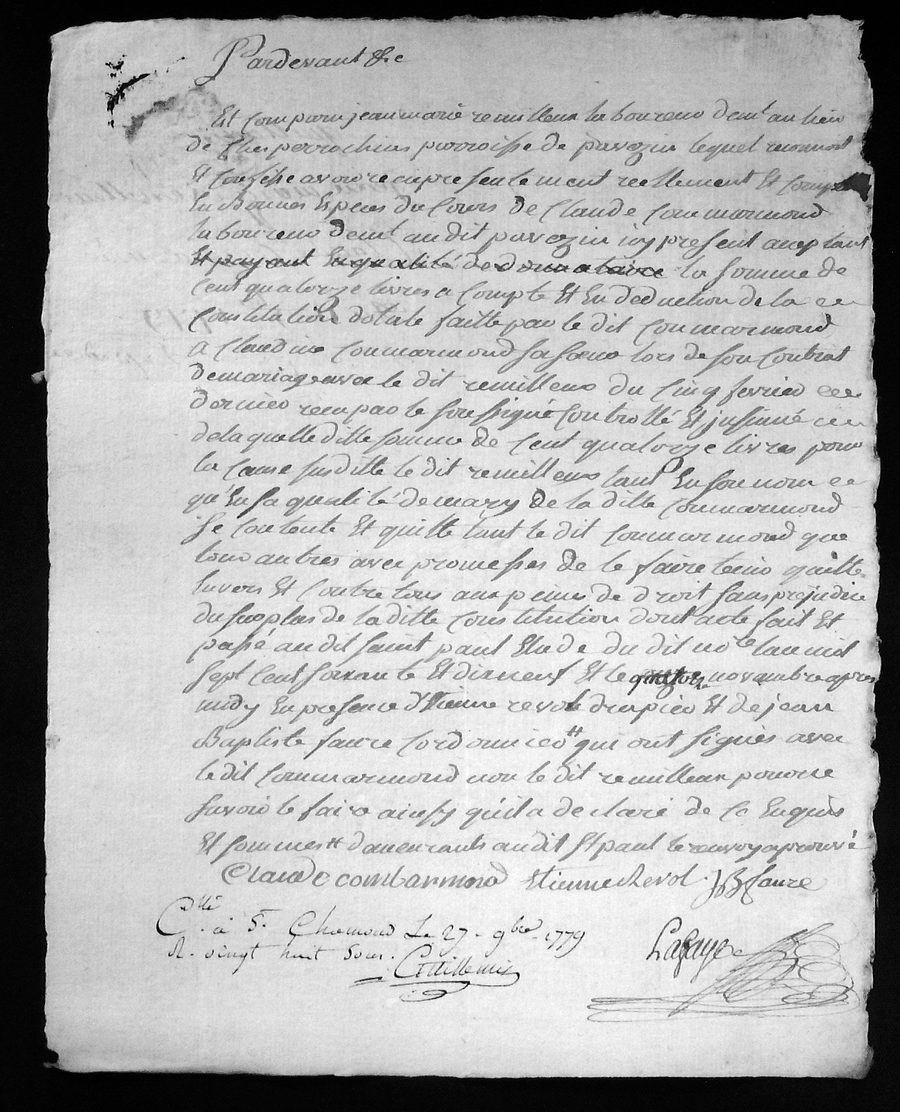 Pardevant &c
Et comparu jean marie remilleux laboureur demt au lieu
de Ches perrochius parroisse de pavezin lequel reconnoit
Et confesse avoir reçu presentement reellement Et compt
En bonnes Especes du Cours de Claude Commarmond
laboureur demt audit pavezin icy present acceptant
Et payant En qualité de donnataire la somme de
Cent quatorze livres a Compte Et En deduction de la
Constitution dotale faitte par le dit Commarmond
a Claudine Commarmond sa sœur lors de son Contrat
de mariage avec le dit remilleux du Cinq fevrier
dernier reçu par le soussigné Controllé Et jnsinué
de laquelle ditte somme de Cent quatorze livres pour
la Cause susditte le dit remilleux tant En son nom
qu'En sa qualité de mary de la ditte Commarmond
se Contente Et quitte tant le dit Commarmond que
tous autres avec promesses de le faire tenir quitte
Envers Et Contre tous aux peines de droit sans prejudice
du surplus de la ditte Constitution dont acte fait Et
passé audit saint paul Etude du dit nore lan mil
sept Cent soixante Et dixneuf Et le novembre apres
midy En presence d'Etienne revol drapier Et de jean
Baptiste faure Cordonnier qui ont signés avec
le dit Commarmond non le dit remilleux pour ne
savoir le faire ainsy qu'il a declaré de Ce Enquis
Et sommés demeurants audit St paul le renvoy approuvé
Claude combarmond Etienne Revol JB faure
Cllé à St. Chamond Le 27. 9bre 1779
R. vingt huit sous.
Lafaye